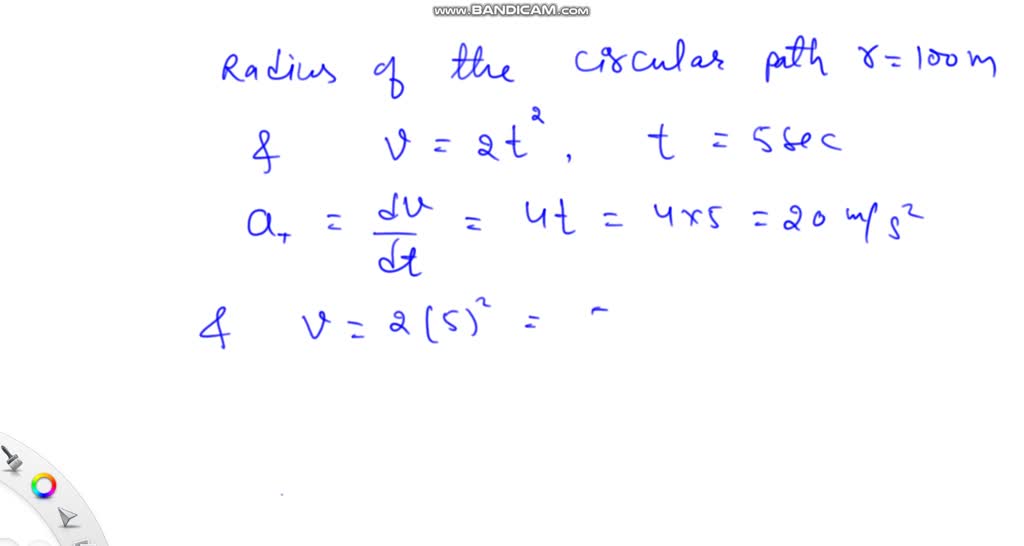 www.BANDICAM.com
Radius of the circular path r = 100 m
& v = 2t², t = 5 sec
a_T = dv/dt = 4t = 4×5 = 20 m/s²
& v = 2(5)² =